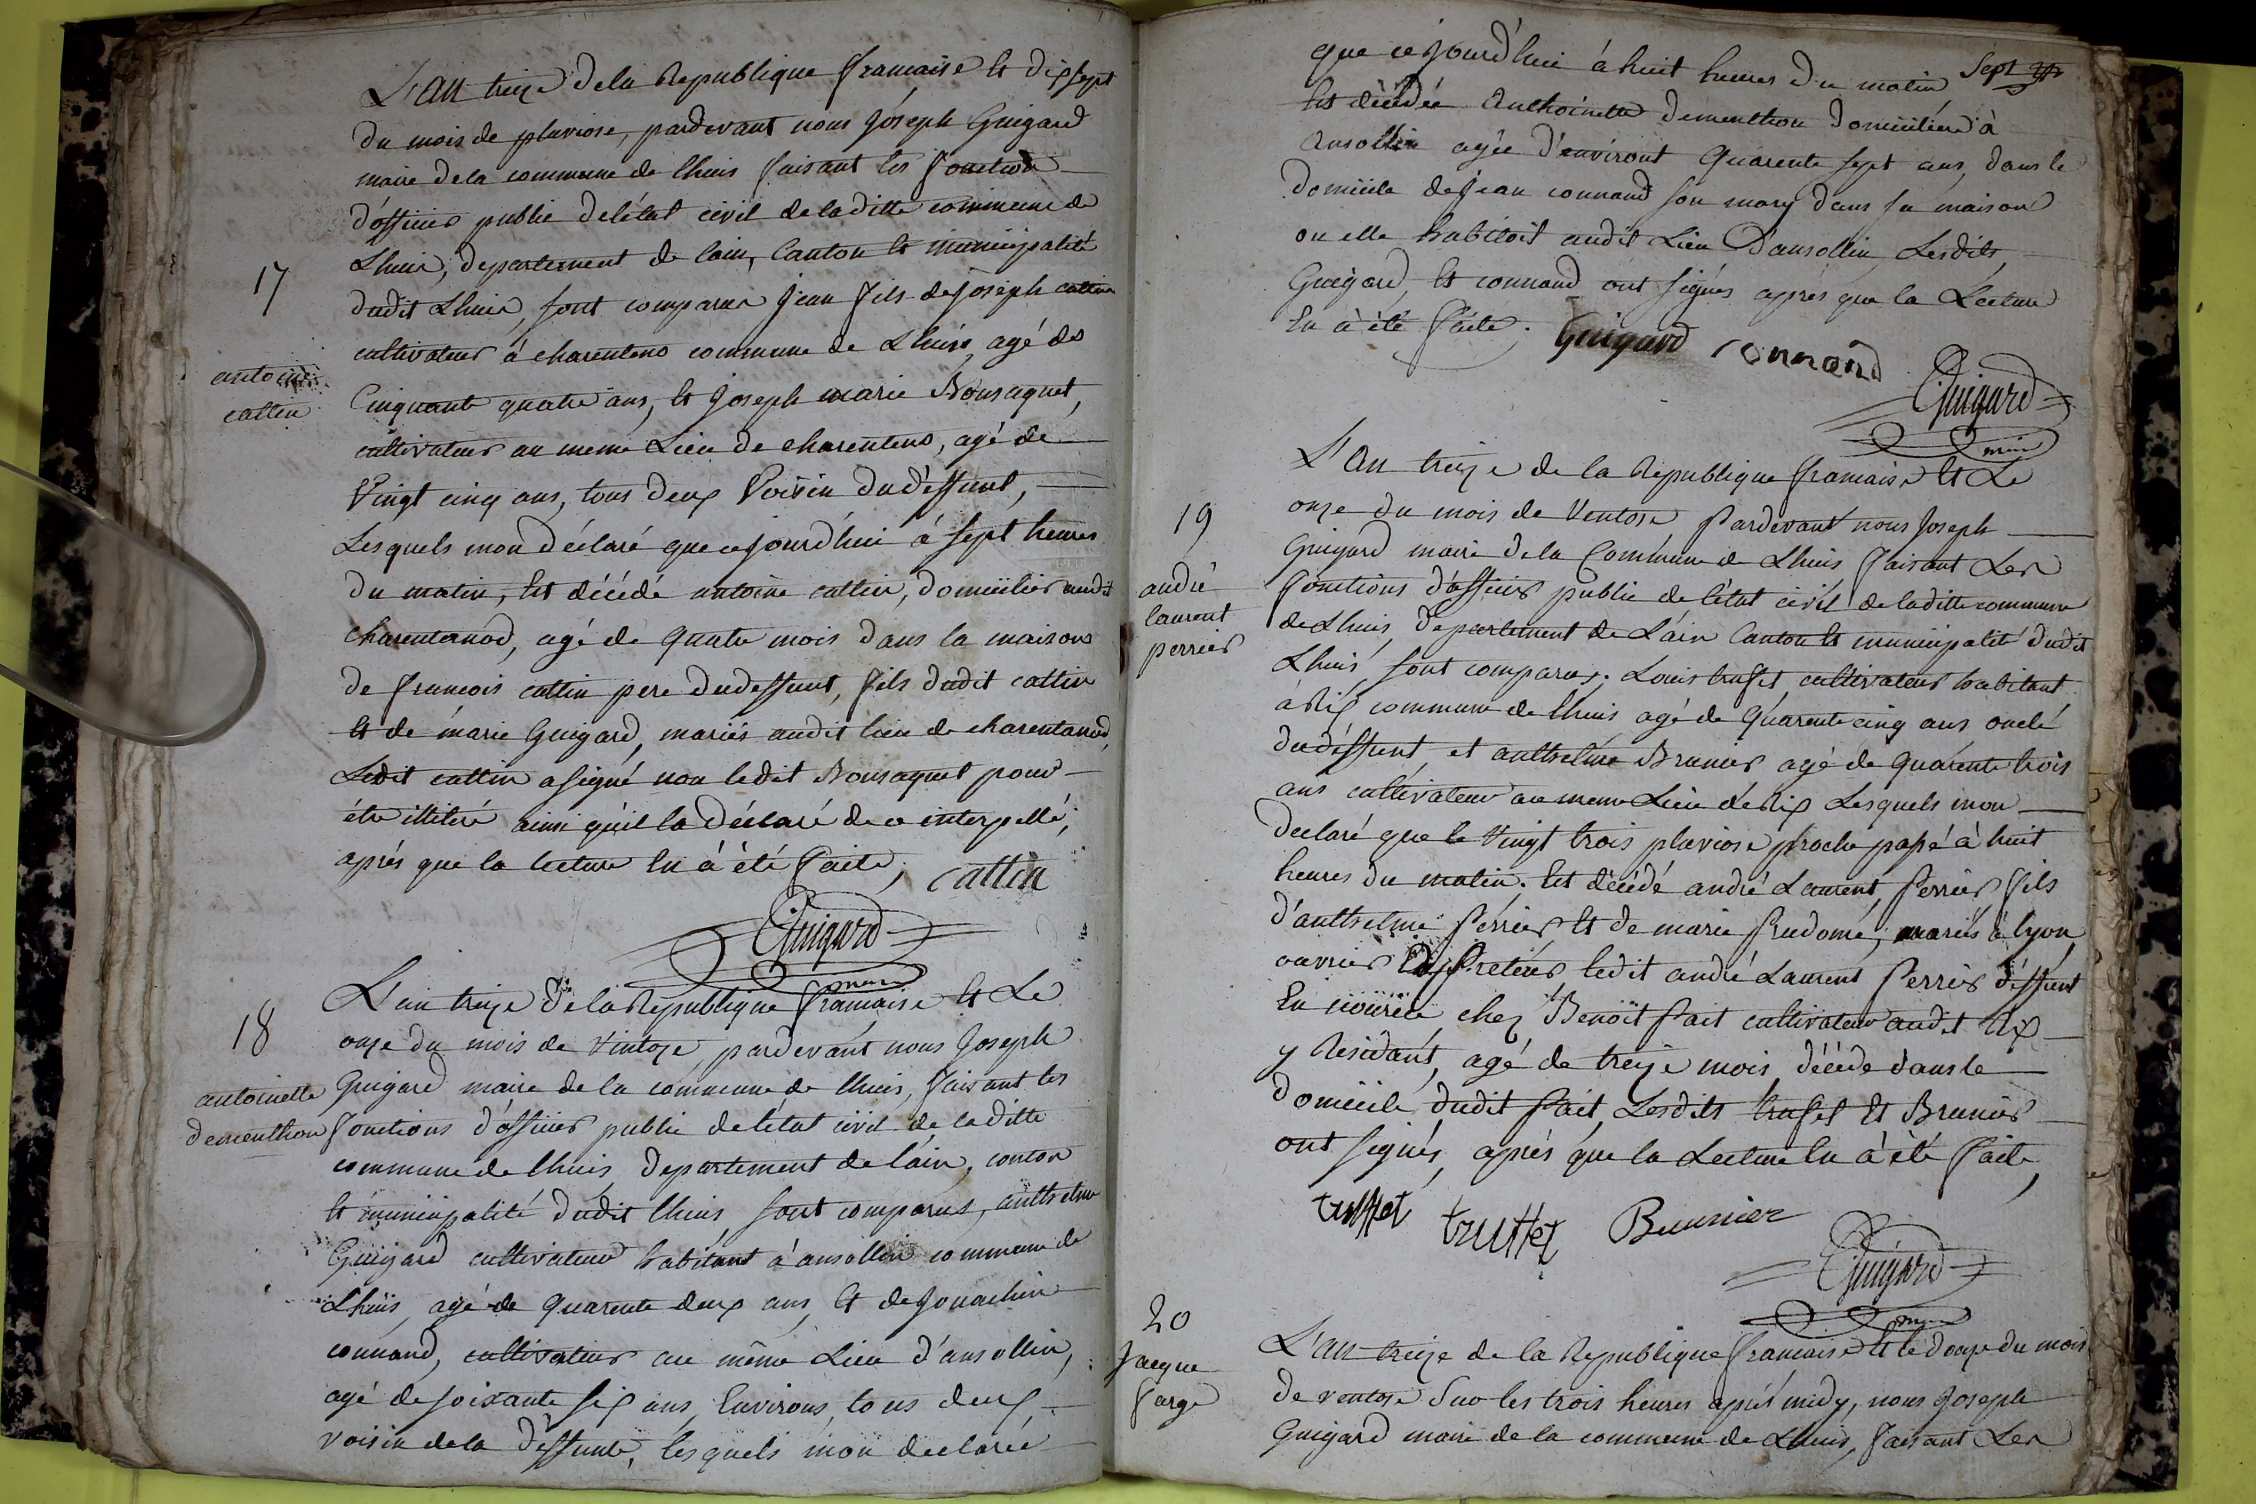 L'an treize de la Republique francaise et dix sept
du mois de pluviose, pardevant nous Joseph Guigard
maire de la commune de lhuis faisant les fonction
d'officier public de létat civil de la ditte commune de
Lhuis, departement de lain, Canton et municipalité
dudit Lhuis, sont comparus jean fils de joseph cattin
17
cultivateur à charenteno commune de Lhuis, agé de
antoine
cattin
Cinquante quatre ans, et joseph marie Bonsaquet,
cultivateur au meme Lieu de charenteno, agé de
Vingt cinq ans, tous deux Voisin du déffunt,
Lesquels mon déclaré que cejourd'hui à sept heures
du matin, Est décédé antoine cattin, domicilier audit
charentanod, agé de quatre mois dans la maison
de francois cattin pere du deffunt, fils dudit cattin
et de marie Guigard, mariés audit lieu de charentanod,
Ledit cattin a signé non ledit Bonsaquet pour
étre illiteré ainsi qu'il la déclaré de ce interpellé,
aprés que la lecture En à été faite, cattin
Guigard
maire
18
antoinette
dementhon
L'an treize de la Republique francaise et Le
onze du mois de Vintoze, pardevant nous Joseph
Guigard maire de la commune de lhuis, faisant les
fonctions d'officier public de létat civil de la ditte
commune de lhuis departement de láin, conton
et municipalité dudit lhuis sont comparus, anthelme
Guigard cultivateur habitant à ansollin commune de
Lhuis, agé de quarente deux ans, et de jouachin
connand, cultivateur au même Lieu d'ansollin,
agé de soixante six ans Environs, tous deux
voisin de la déffunte, lesquels mon declaree
Sept
que ce jourd'hui à huit heures du matin
Est décédée Anthoinette dementhon domiciliée à
Ansollin agée d'environt quarente sept ans, dans le
domicile de jean connand son mary dans sa maison
ou elle habitoit audit Lieu D'ansollin, Lesdits
Guigard, et connand ont signés apres que la Lecture
En à été faite. Guigard connand
Guigard
maire
L'an treize de la Republique francaise et Le
onze du mois de Ventose pardevant nous Joseph
19
andré
laurent
perrier
Guigard maire de la Commune de Lhuis faisant Les
fonctions d'officier public de létat civil de la ditte commune
de Lhuis, departement de L'áin Canton et municipalité dudit
Lhuis, sont comparus. Louis truffet cultivateur habitant
à Rix commune de lhuis agé de quarente cinq ans oncle
du déffunt, et anthelme Brunier agé de quarente trois
ans cultivateur au meme Lieu de Rix Lesquels mon
declaré que le Vingt trois pluviose proche passé à huit
heures du matin. Est décédé andré Laurent, perrier, fils
d'anthelme perrier et de marie prudome, mariés à lyon
ouvrier ledit andré Laurent Perrier déffunt
En chez Benoit fait cultivateur audit Rix
y Residant, agé de treize mois, décédé dans le
domicile dudit fait, Lesdits truffet et Brunier
ont signés, aprés que la Lecture En à été faite,
truffet truffet Brunier
Guigard
maire
20
Jacque
farge
L'an treize de la Republique francaise et le douze du mois
de ventose Sur les trois heures aprés midy, nous Joseph
Guigard maire de la commune de Lhuis, faisant Les